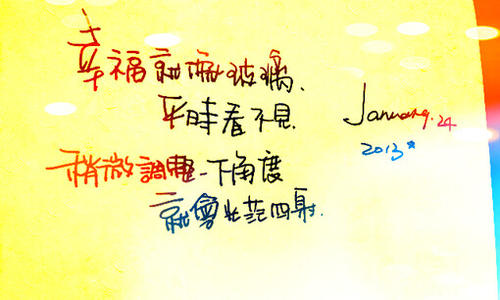 幸福就像玻璃.
平時看不見.
稍微調整一下角度
就會光芒四射.
January.24
2013*